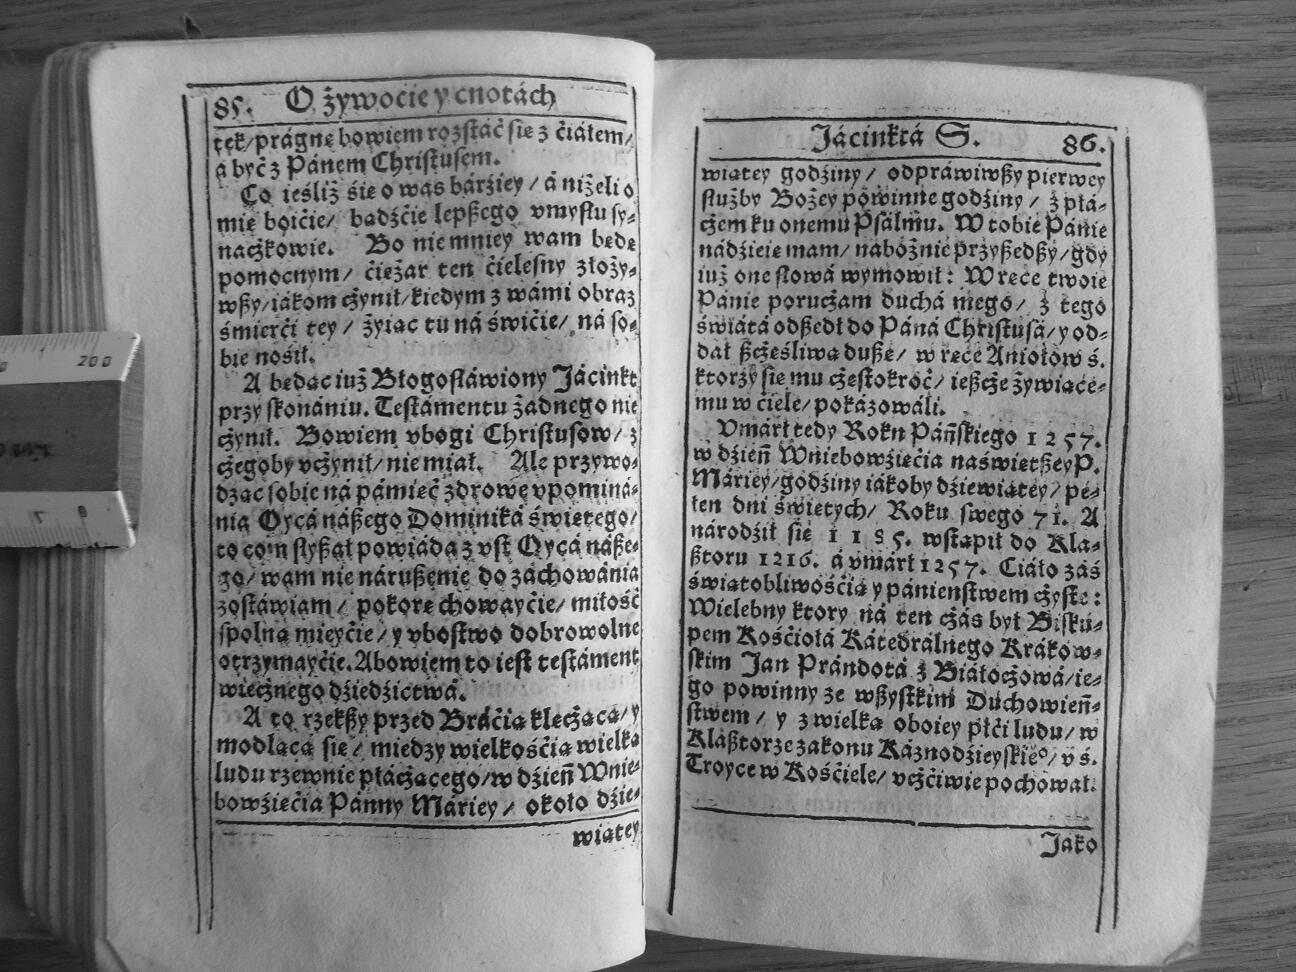 85. O żywocie y cnotách
tek/prágnę bowiem rozstáć sie z ćiáłem/
á być z Pánem Christusem.
Co ieśliż śie o was bárźiey / á niżeli o
mię boićie/ bądźćie lepßego vmysłu sy-
naczkowie. Bo niemniey wam będę
pomocnym/ ćieżar ten ćielesny złoży-
wßy/iákom czynił/kiedym z wámi obraz
śmierći tey / żyiąc tu ná świećie/ ná so-
bie nośił.
A będąc iuż Błogosłáwiony Jácinkt
przy skonániu. Testámentu żadnego nie
czynił. Bowiem vbogi Christusow/ z
czegoby vczynił/nie miał. Ale przywo-
dząc sobie ná pámięć zdrowe vpominá-
nia Oycá náßego Dominiká świętego/
to com słyßał powiáda z vst Oycá náße-
go/ wam nie nárußenie do záchowánia
zostáwiam/ pokorę chowayćie/ miłość
spolną mieyćie/ y vbostwo dobrowolne
otrzymayćie. Abowiem to iest testáment
wiecznego dźiedźictwá.
A to rzekßy przed Bráćią klęczącą/ y
modlącą się/ miedzy wielkośćią wielką
ludu rzewnie płáczącego/w dźień Wnie-
bowźięćia Pánny Máriey/ około dźie-
wiątey
Jácinktá S. 86.
wiątey godźiny/ odpráwiwßy pierwey
służby Bożey powinne godźiny/ z płá-
czem ku onemu Psálmu. W tobie Pánie
nádźieię mam/ nabożnie przyßedßy/gdy
iuż one słowá wymowił: W ręce twoie
Pánie poruczam duchá mego/ z tego
świátá odßedł do Páná Christusá/y od-
dał ßczęśliwą dußę/ w ręce Aniołow ś.
ktorzy się mu częstokroć/ ießcze żywiące-
mu w ćiele/ pokázowáli.
Vmárł tedy Roku Páńskiego 1257.
w dźień Wniebowźięćia naświętßey P.
Máriey/godźiny iákoby dźiewiątey/ pe-
łen dni świętych/ Roku swego 71. A
národźił się 1185. wstąpił do Kla-
ßtoru 1216. á vmárł 1257. Ciáło záś
świątobliwośćią y pánieństwem czyste:
Wielebny ktory ná ten czás był Bisku-
pem Kośćiołá Kátedrálnego Krákow-
skim Jan Prándotá z Białoczowá/ie-
go powinny ze wßystkim Duchowień-
stwem/ y z wielką oboiey płći ludu/ w
Kláßtorze zakonu Káznodźieyskieº/ v ś.
Troyce w Kośćiele/ vczćiwie pochował.
Jako
0
200